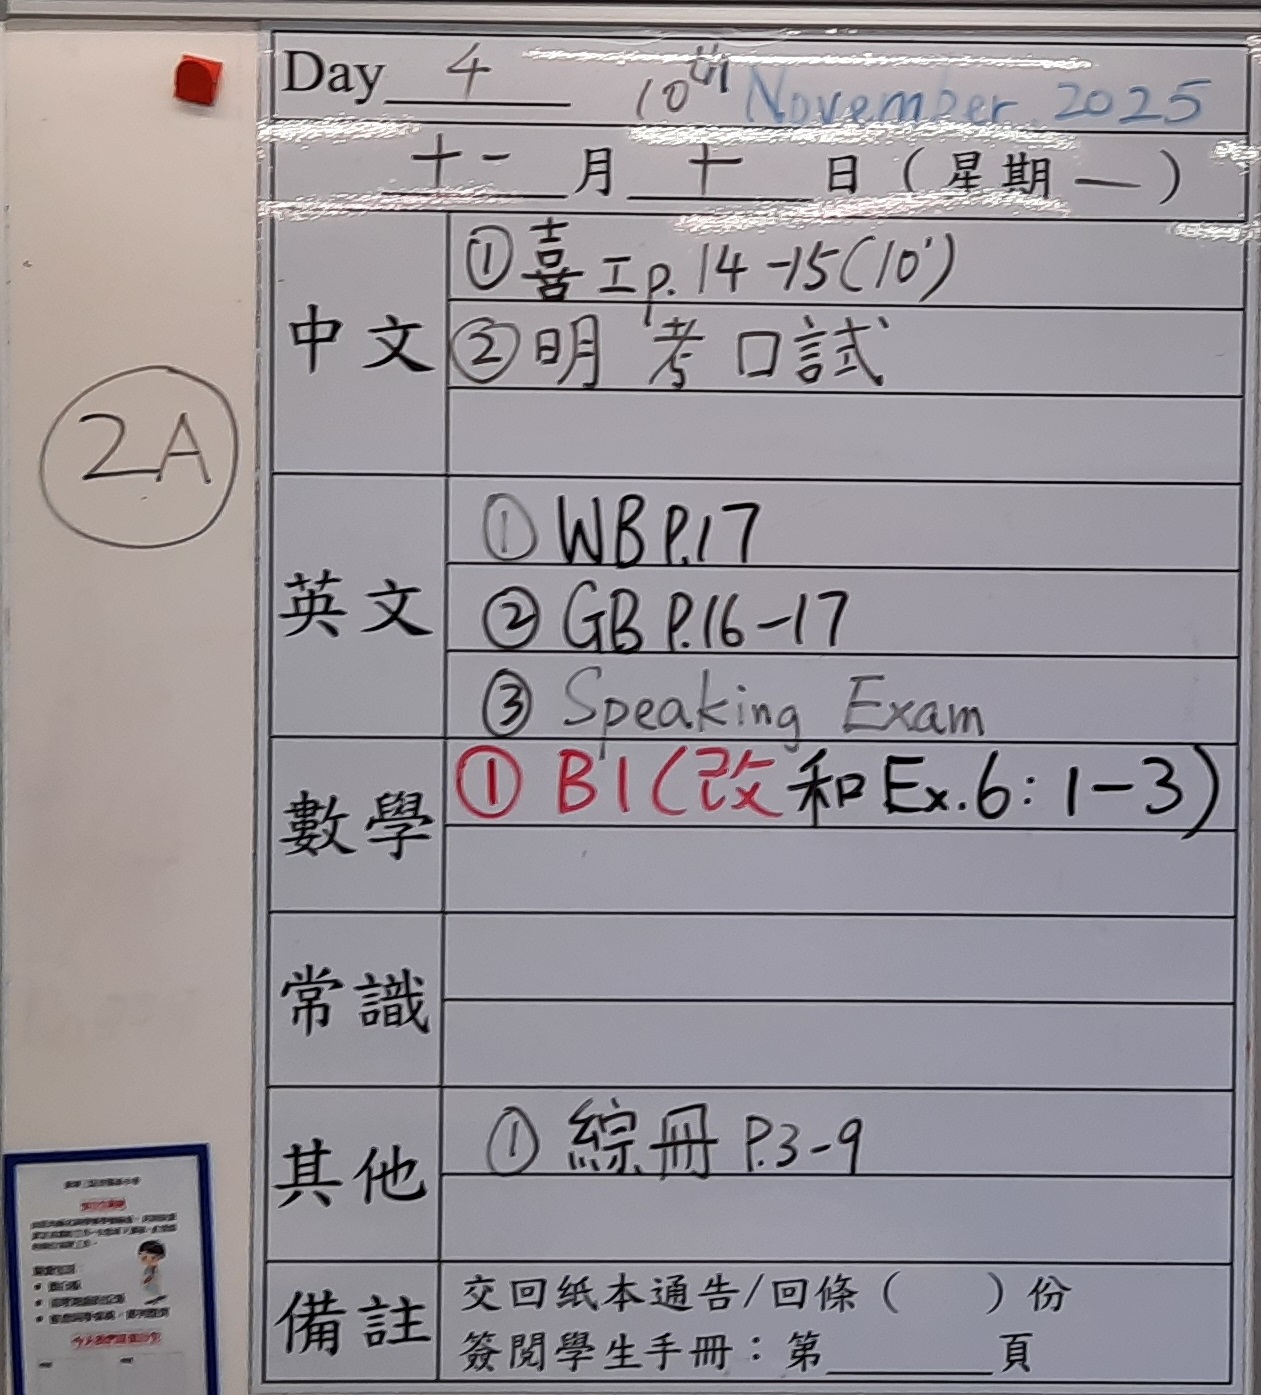 Day 4 10th November 2025
十一月十日（星期一）
中文
①喜工p.14-15(10')
②明考口試
2A
英文
①WB P.17
②GB P.16-17
③Speaking Exam
數學
①B1(改和Ex.6:1-3)
常識
其他
①綜冊P.3-9
備註
交回紙本通告/回條（ ）份
簽閱學生手冊：第____頁